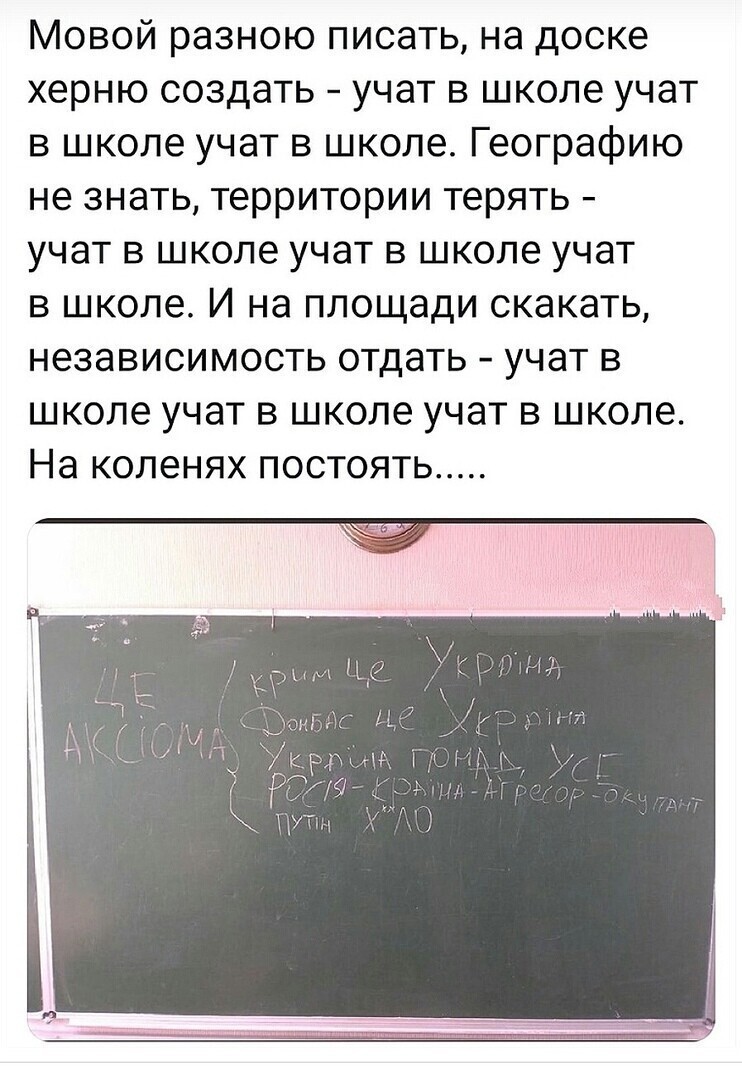 Мовой разною писать, на доске
херню создать - учат в школе учат
в школе учат в школе. Географию
не знать, территории терять -
учат в школе учат в школе учат
в школе. И на площади скакать,
независимость отдать - учат в
школе учат в школе учат в школе.
На коленях постоять.....
ЦЕ
АКСІОМА
крим це Україна
Донбас це Україна
Україна понад усе
РОСІЯ - країна - агресор - окупант
путін х**ло